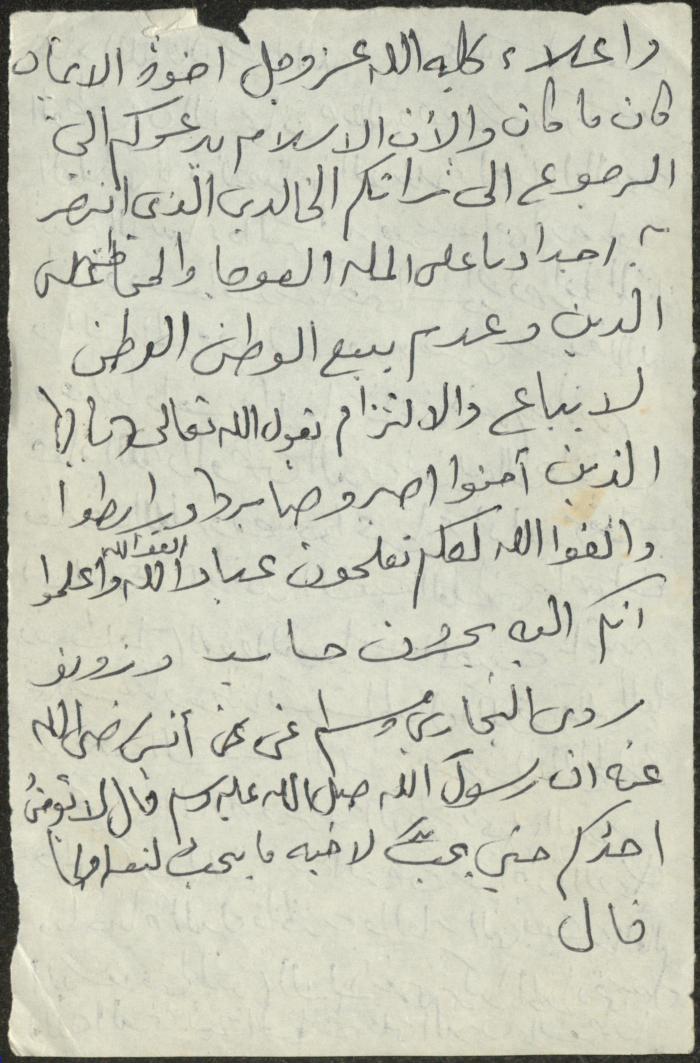 واعلاء كلمه الله عز وجل اخوة الايمان
كان ما كان والأن الاسلام يدعوكم الى
الرجوع الى تراثكم الخالدى الذى انتصر
به اجدادنا على
الدين وعدم بيع الوطن الوطن
لا ينباع والالتزام بقول الله تعالى يا ايها
الذين آمنوا اصبرو صابروا ورابطوا
واتقوا الله لعلكم تفلحون عباد الله اتقوا الله واعلموا
انكم اليه
روى البخارى ومسلم عن عن أنس رضى الله
عنه ان رسول الله صلى الله عليه وسلم قال لا يؤمن
احدكم حتى يحب لاخيه ما يحب لنفسه
قال